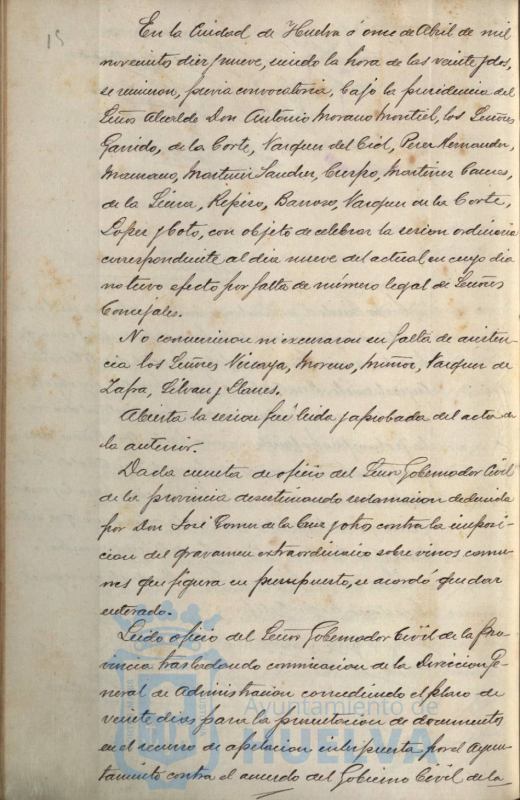 15
En la Ciudad de Huelva á once de Abril de mil
novecientos diez y nueve, siendo la hora de las veinte y dos,
se reunieron, previa convocatoria, bajo la presidencia del
Señor Alcalde Don Antonio Morano Montiel, los Señores
Garrido, de la Corte, Vazquez del Ciól, Perez Hernandez,
Mascaros, Martinez Sanchez, Crespo, Martinez
de la Sierra, Repiso, Barroso, Vazquez de la Corte,
Lopez y Coto, con objeto de celebrar la sesion ordinaria
correspondiente al dia nueve del actual en cuyo dia
no tuvo efecto por falta de número legal de Señores
Concejales.
No concurrieron ni excusaron su falta de asisten-
cia los Señores Vizcaya, Moreno, Muñoz, Vazquez de
Zafra, Silvan y Llanes.
Abierta la sesion fué leida y aprobada del acta de
la anterior.
Dada cuenta de oficio del Señor Gobernador Civil
de la provincia desestimando reclamacion deducida
por Don José Gomez de la Cruz y otros contra la imposi-
cion del gravamen extraordinario sobre vinos comu-
nes que figura en presupuesto, se acordó quedar
enterado.
Leido oficio del Señor Gobernador Civil de la Pro-
vincia trasladando comunicacion de la Direccion Ge-
neral de Administracion concediendo el plazo de
veinte dias para la presentacion de documentos
en el recurso de apelacion interpuesto por el Ayun-
tamiento contra el acuerdo del Gobierno Civil de la
Ayuntamiento de
HUELVA